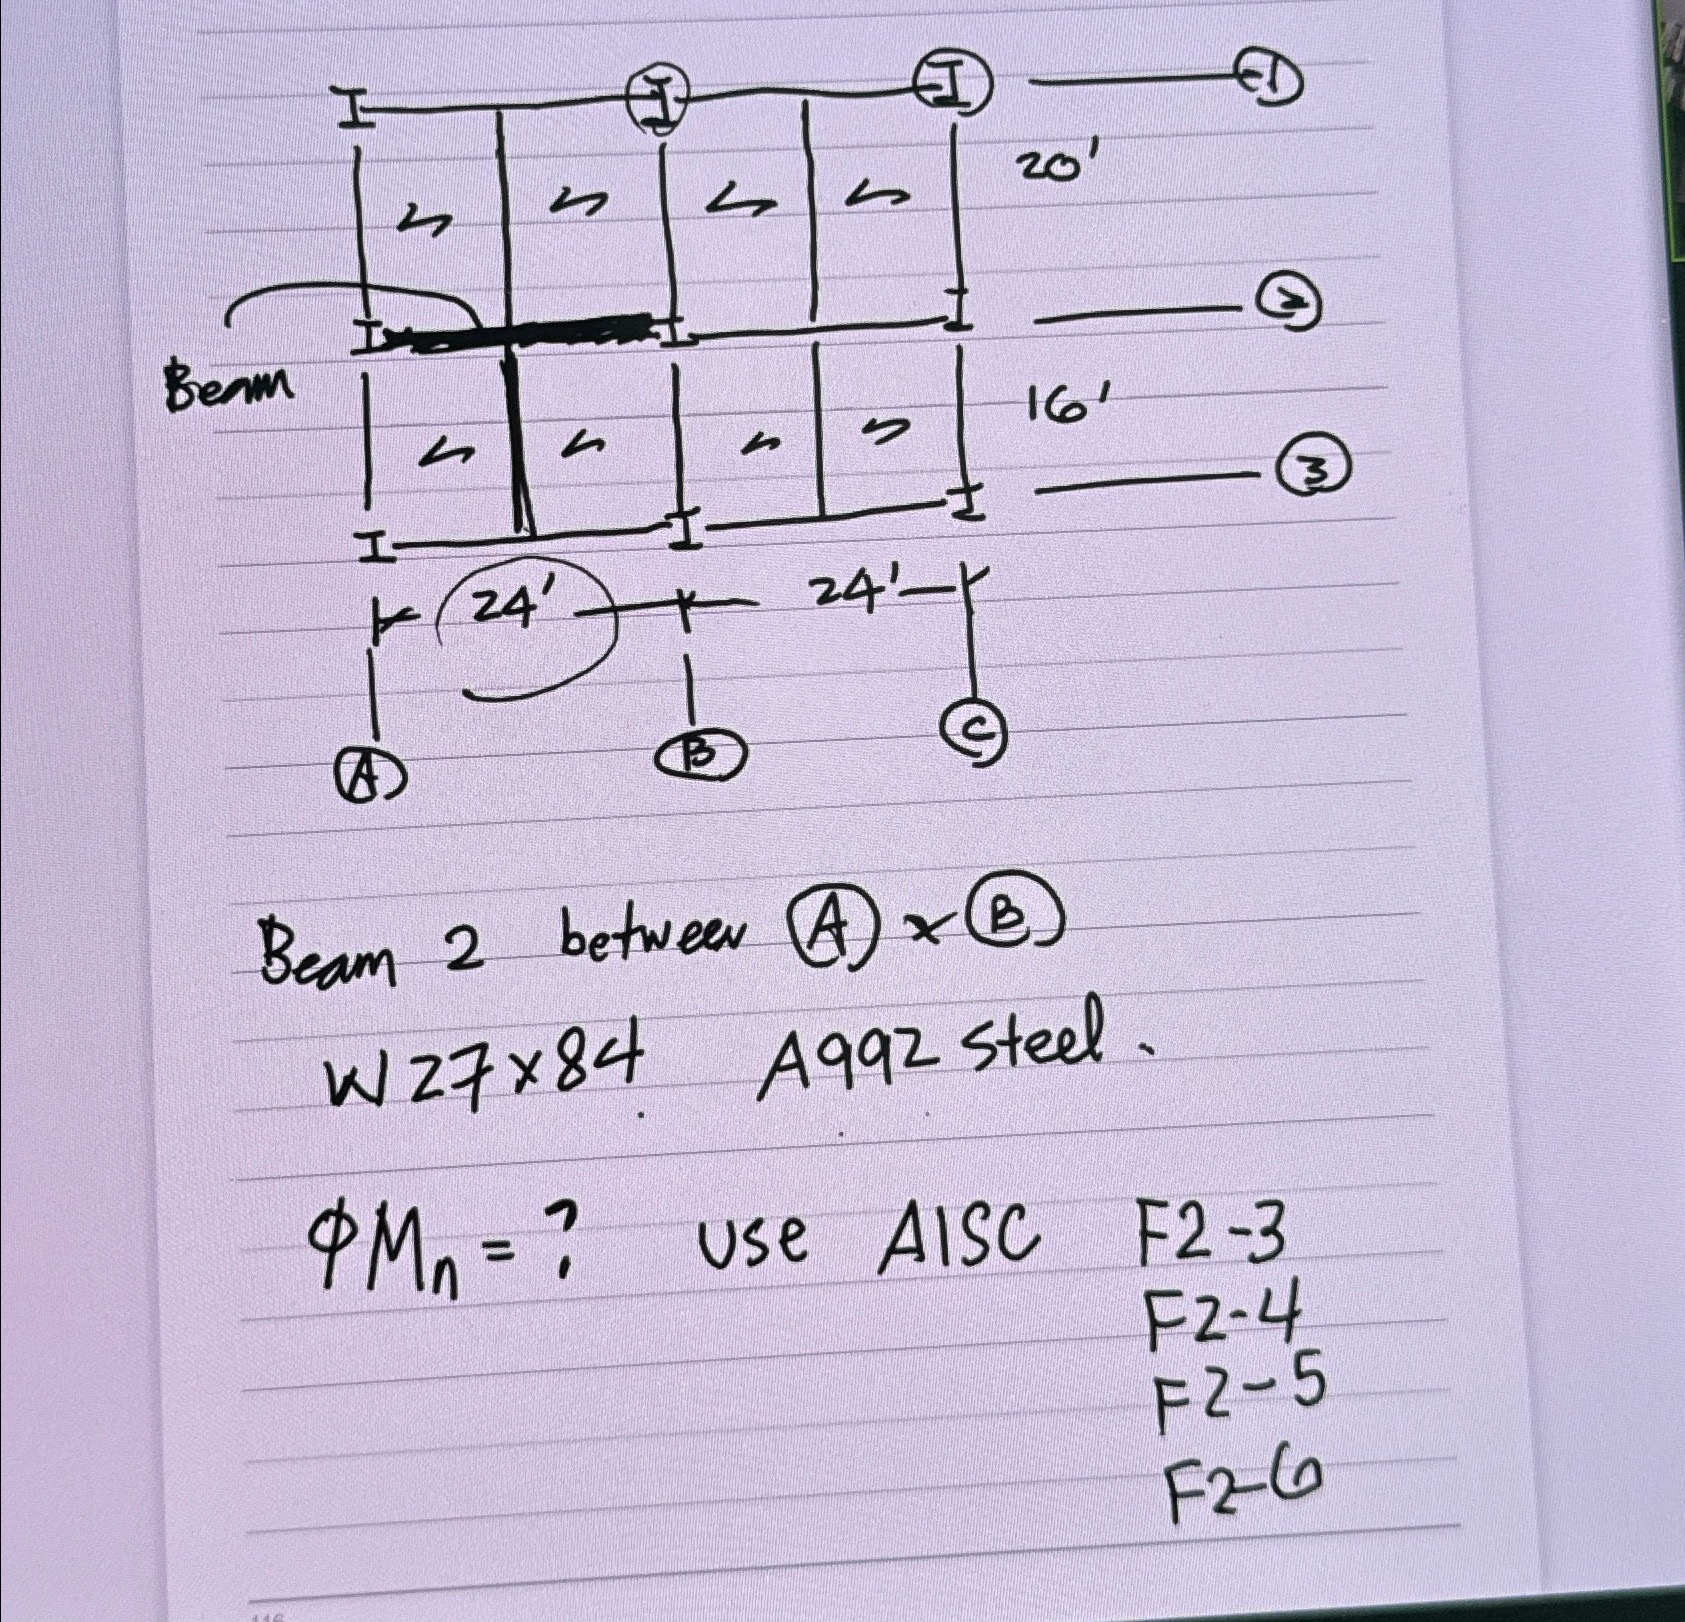 1
20'
2
Beam
16'
3
24' 24'
A B C
Beam 2 between A & B
W27x84 A992 steel.
ΦMn = ? use AISC F2-3
F2-4
F2-5
F2-6